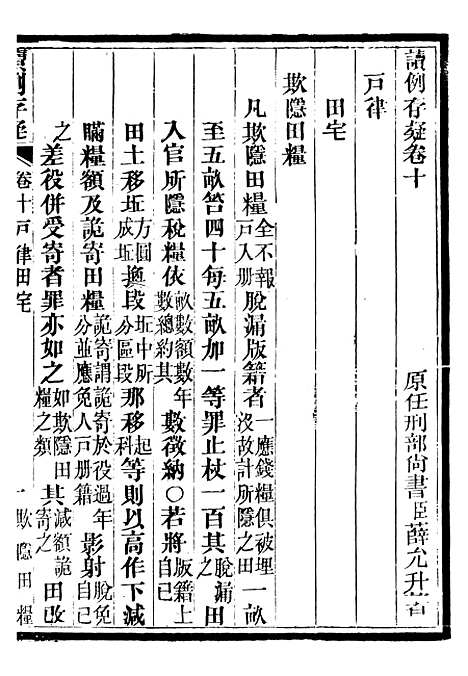 讀例存疑卷十　原任刑部尚書臣薛允升著
戶律
田宅
欺隱田糧
凡欺隱田糧全不報戶入冊脫漏版籍者一應錢糧俱被埋沒故計所隱之田一畝
至五畝笞四十每五畝加一等罪止杖一百其脫漏之田
入官所隱稅糧依畝數額數年數總約其數徵納○若將版籍上自己
田土移坵方圓成坵換段坵中所分區段那移起科等則以高作下減
瞞糧額及詭寄田糧詭寄謂詭寄於役過年分並應免人戶冊籍影射脫免自己
之差役併受寄者罪亦如之如欺隱田糧之類其減額詭寄之田改
讀例存疑　卷十戶律田宅　一　欺隱田糧